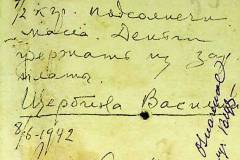 1/2 кгр. подсолнечн
масла. Деньги
держать из зар
платы.
Щербина Васил
8/6-1942